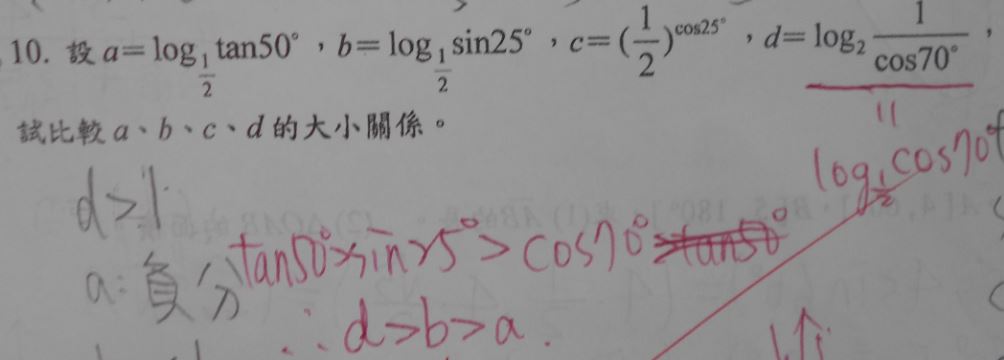 10. 設 a=log_{1/2} tan50°，b=log_{1/2} sin25°，c=(1/2)^{cos25°}，d=log_2 1/cos70°，
試比較 a、b、c、d 的大小關係。
||
log_{1/2} cos70°
d>1
tan50°>sin25°>cos70°
a: 負分
∴ d>b>a.